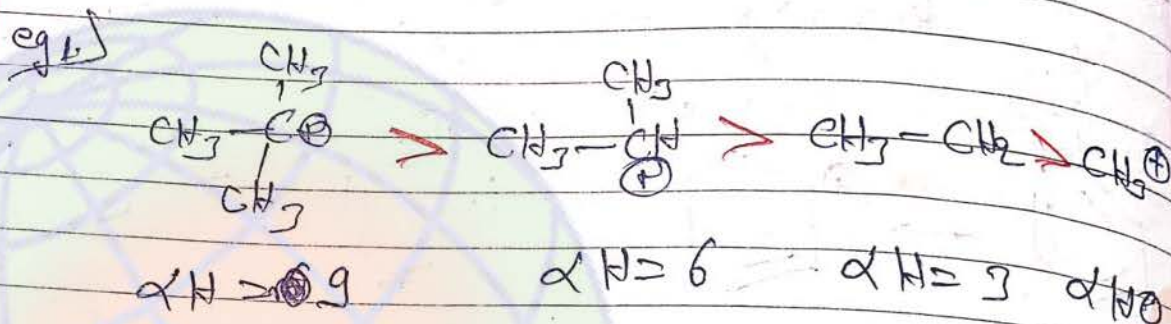 eg 1.]
CH3 CH3
CH3 – C⊕ > CH3 – CH > CH3 – CH2 > CH3⊕
CH3 ⊕
αH = 9 αH = 6 αH = 3 αH0